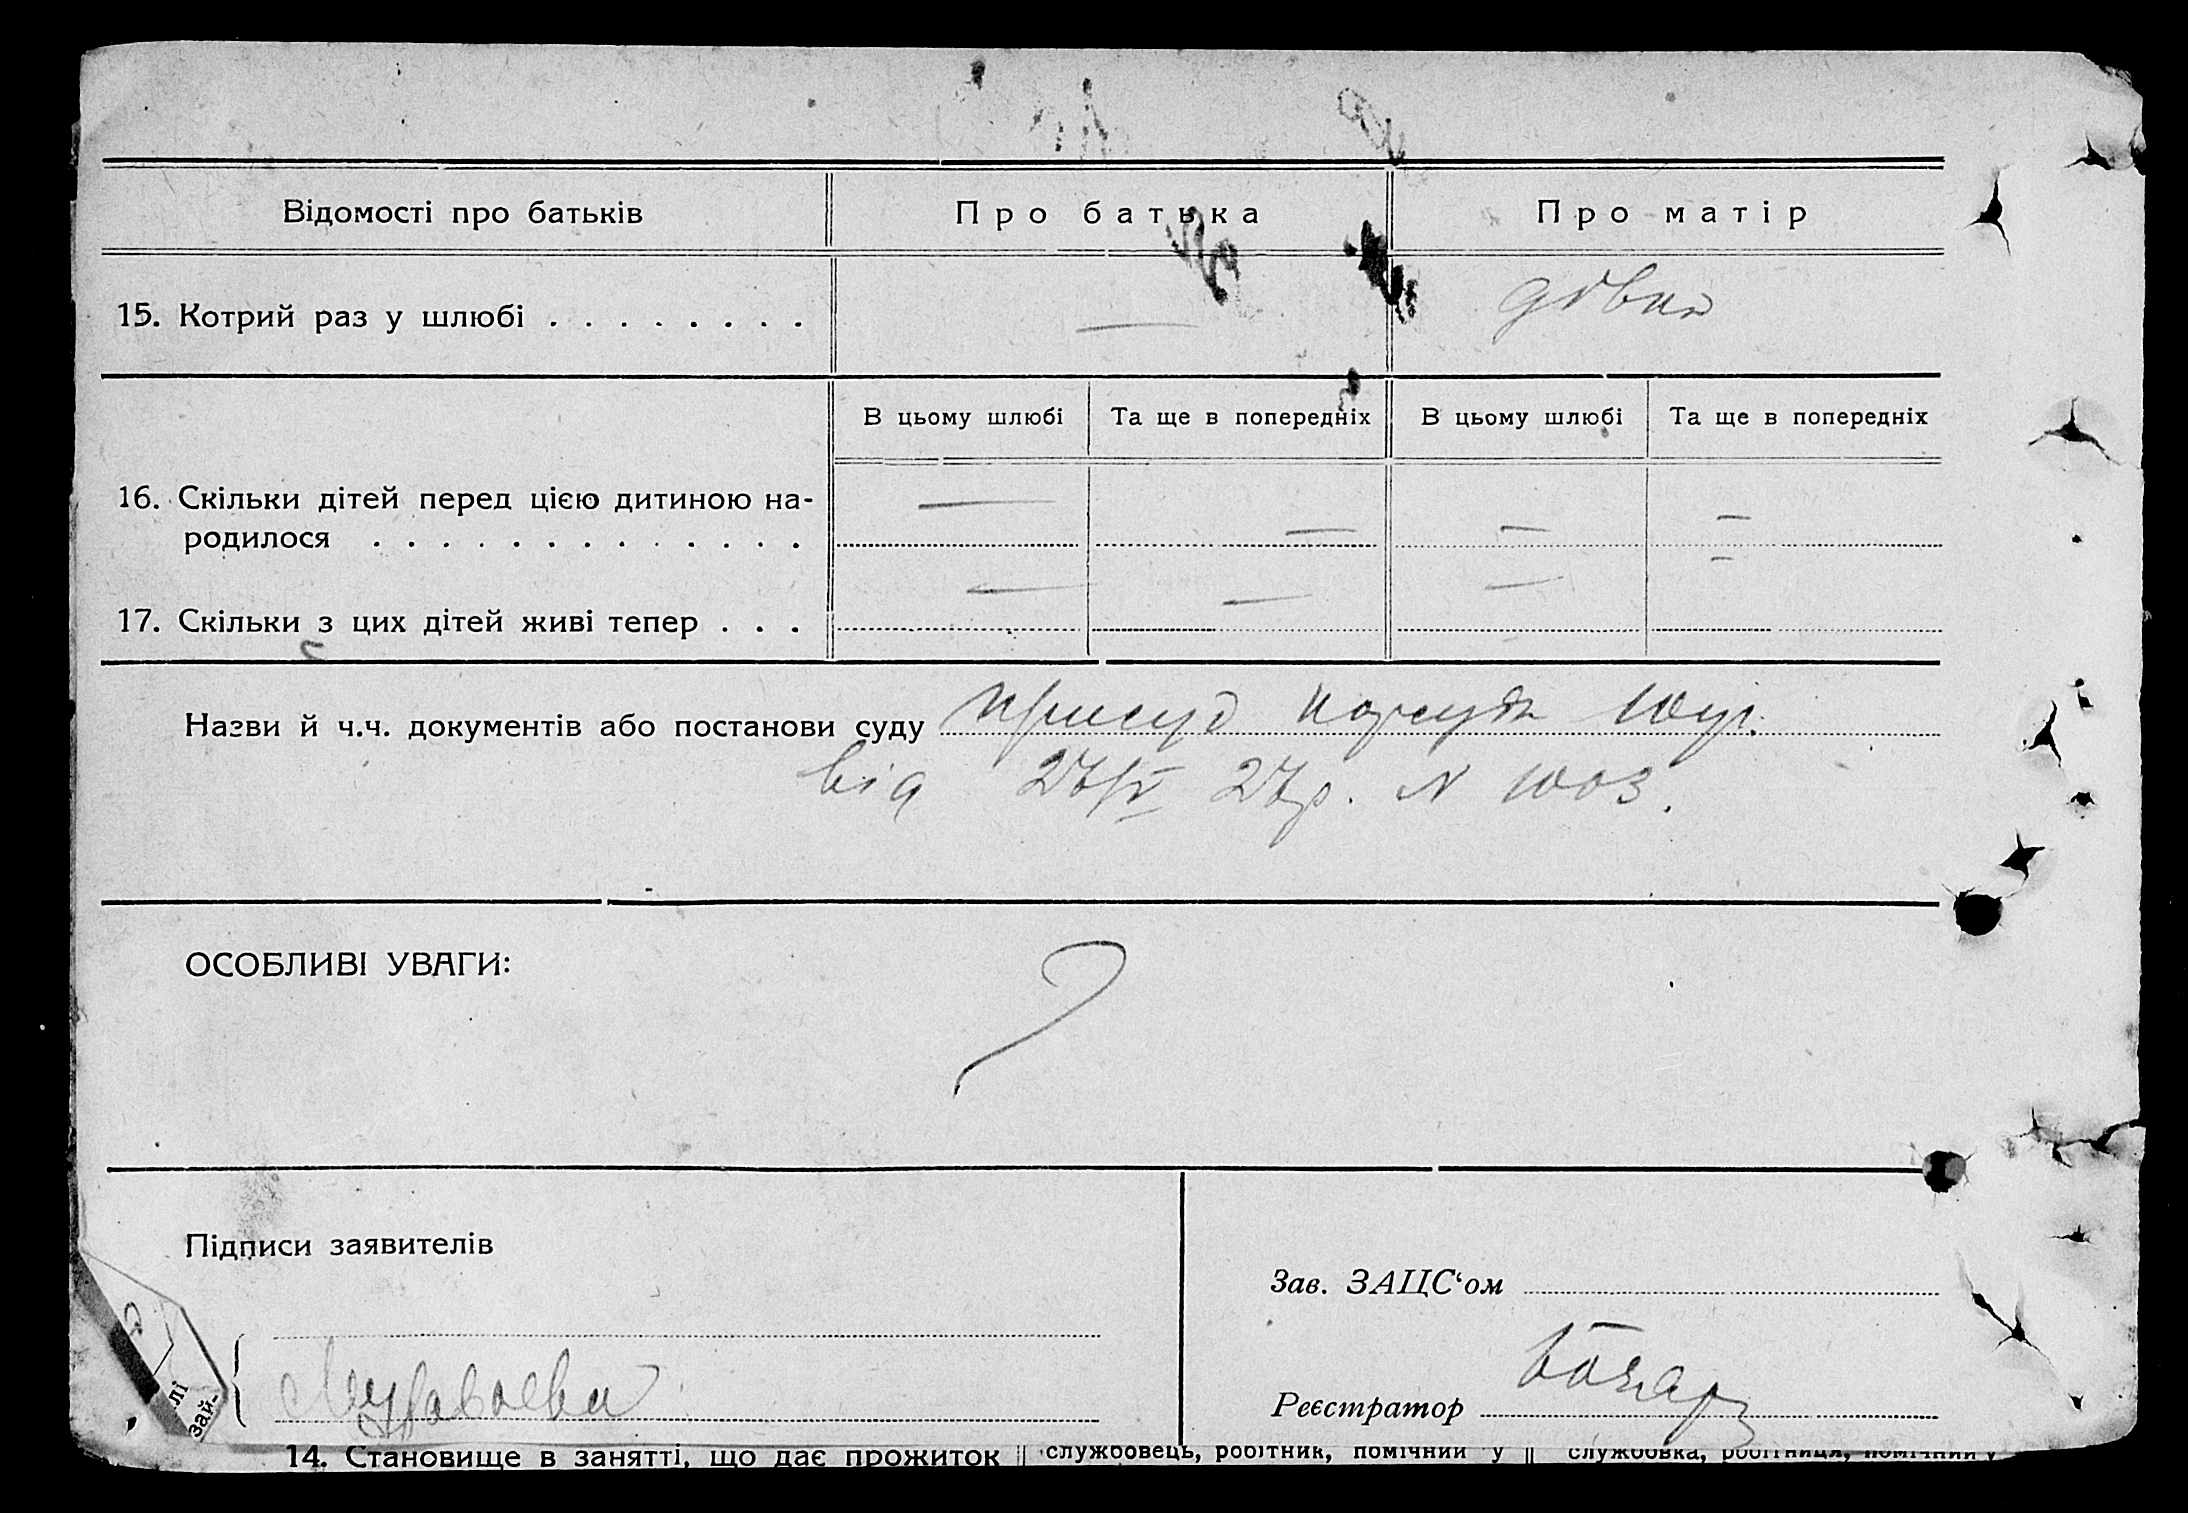 Відомості про батьків Про батька Про матір
15. Котрий раз у шлюбі . . . . . . . . — дівка
В цьому шлюбі Та ще в попередніх В цьому шлюбі Та ще в попередніх
16. Скільки дітей перед цією дитиною на-
родилося . . . . . . . . . . . . . — — — —
17. Скільки з цих дітей живі тепер . . . — — — —
Назви й ч.ч. документів або постанови суду присуд нарсуда 10 уч.
від 27/IV 27 р. N 1003.
ОСОБЛИВІ УВАГИ:
Підписи заявителів
Зав. ЗАЦС‘ом
Муравьева
Реєстратор
лі
зай-
14. Становище в занятті, що дає прожиток службовець, робітник, помічний у службовка, робітниця, помічний у